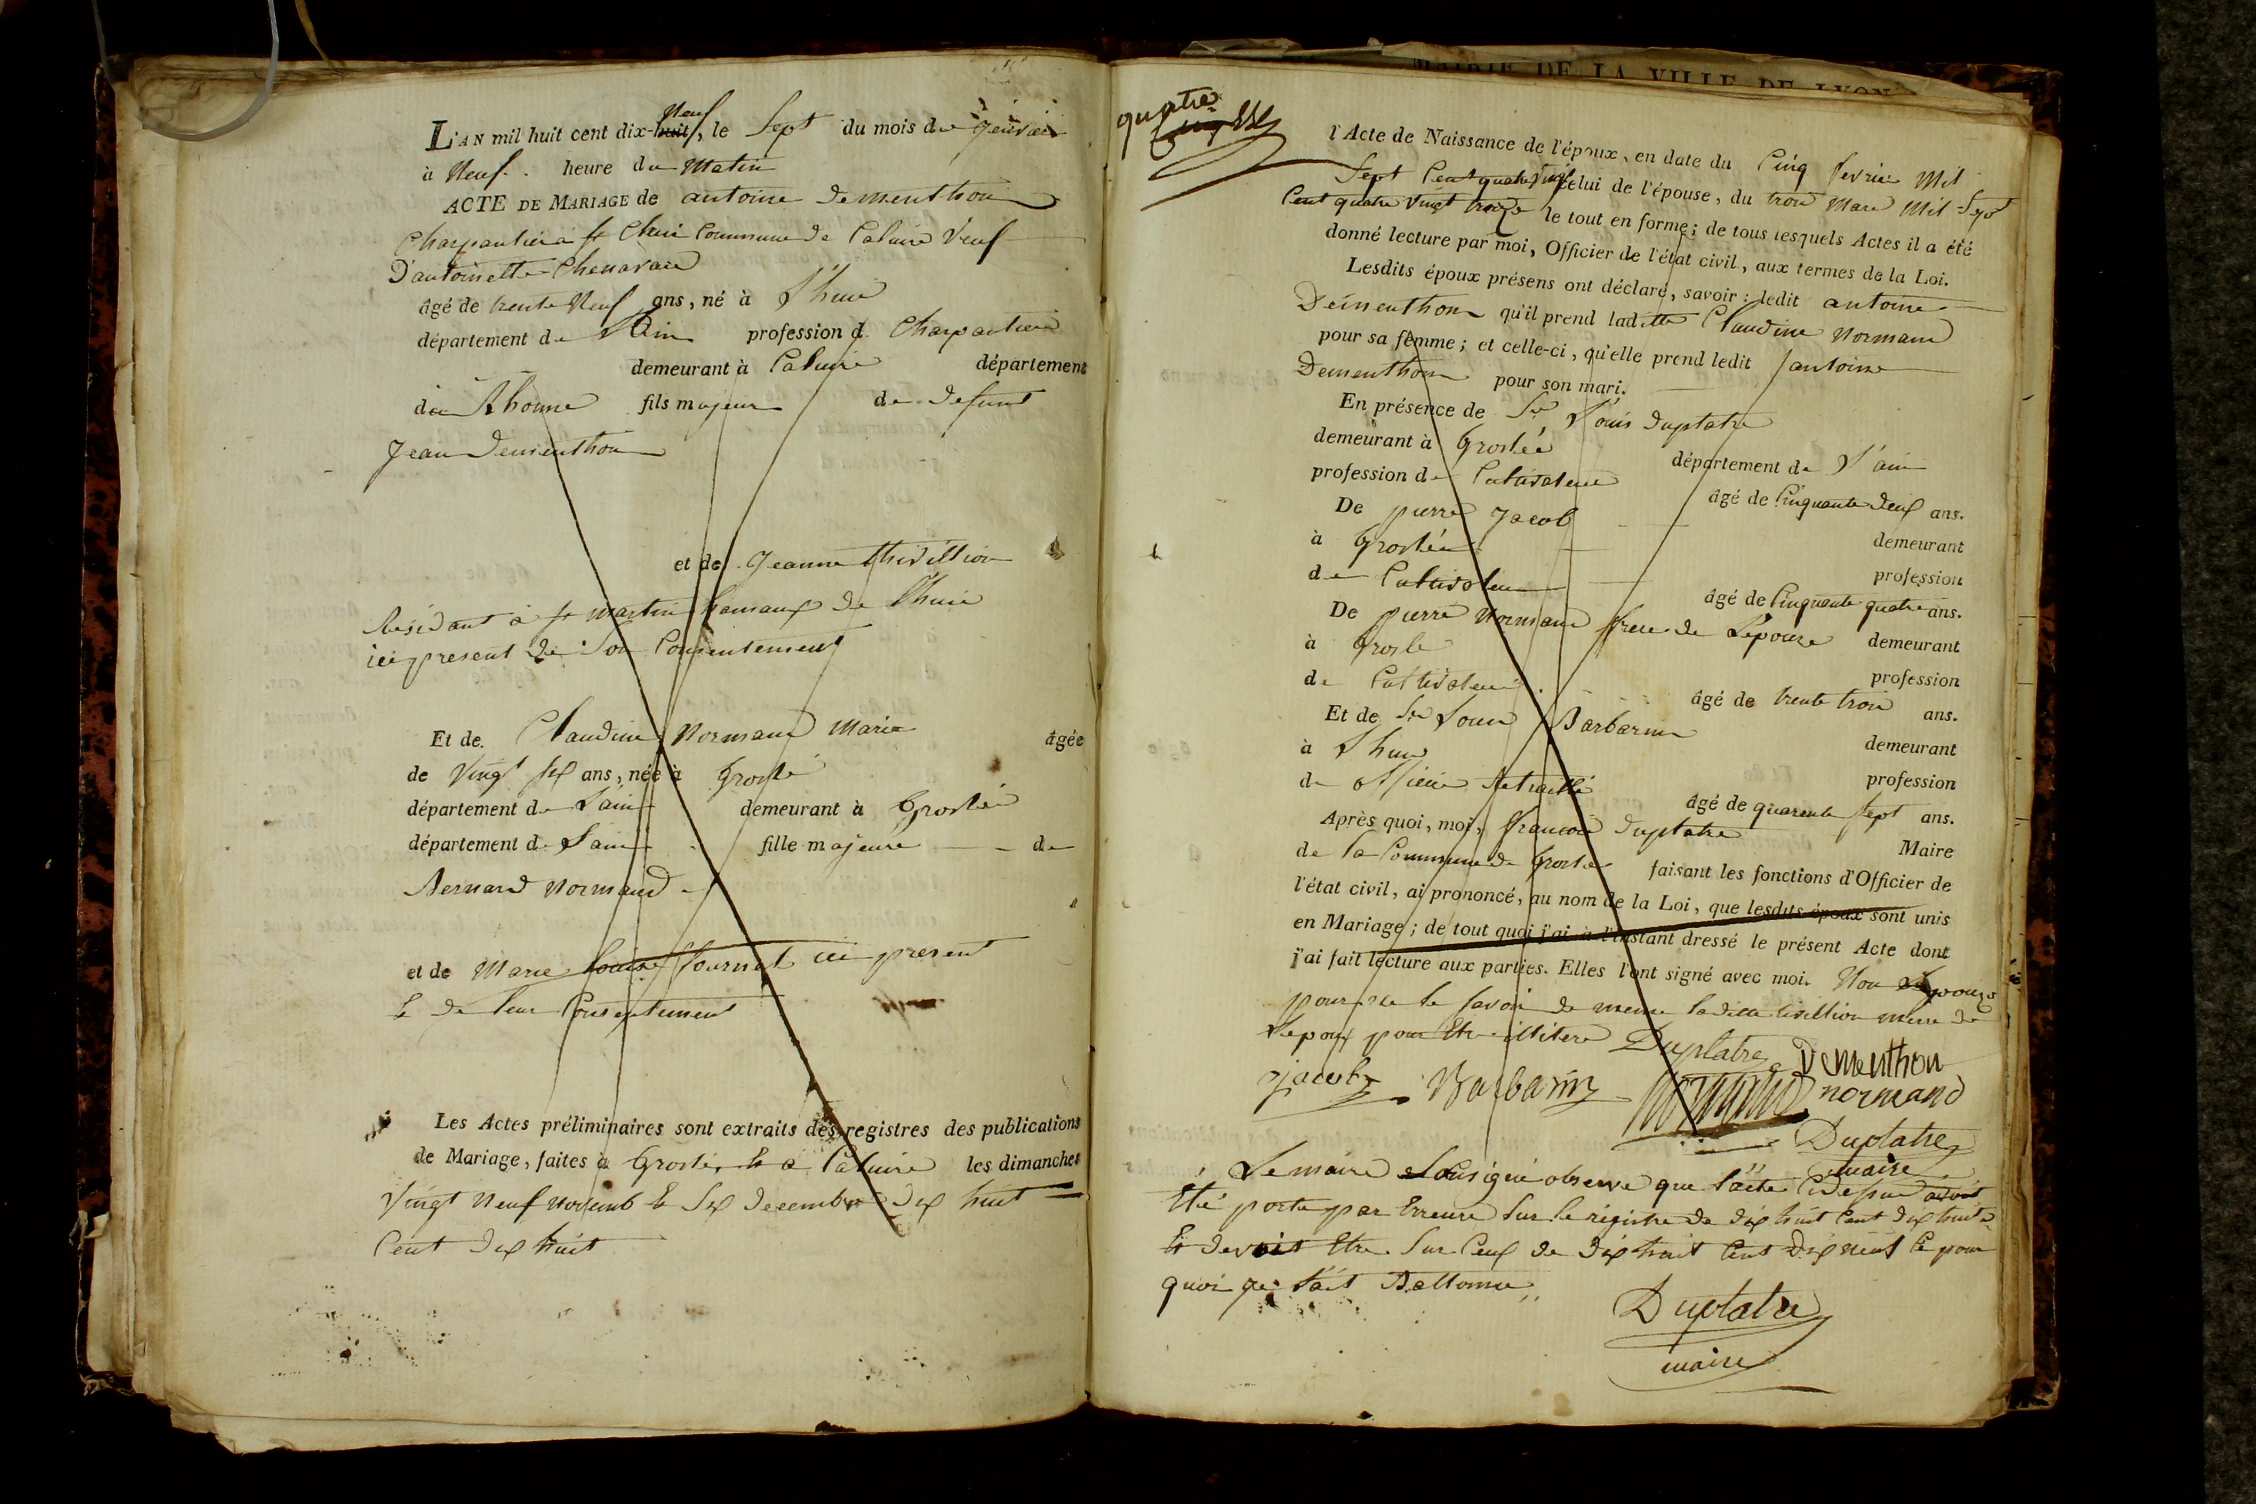 L'AN mil huit cent dix-huit Neuf, le Sept du mois de Jenvier
à Neuf heure du Matin
ACTE DE MARIAGE de antoine Dementhon
Charpantier à St Clair Commune de Caluire veuf
D'antoinette Chenavaie
âgé de trente Neuf ans, né à Lhuis
département de L'Ain profession d. Charpantier
demeurant à Caluire département
du Rhonne fils majeur de defunt
Jean Dementhon
et de Jeanne thivillion
Résidant à St Martin hamaux de Lhuis
ici present de Son Consentement
Et de Claudine Normand Marie âgée
de Vingt six ans, née à Groslé
département de L'ain demeurant à Groslée
département de Lain fille majeure de
Bernard Normand
et de Marie Louise fournet ici present
& de leur Consentement
Les Actes préliminaires sont extraits des registres des publications
de Mariage, faites à Groslée & a Caluire les dimanches
Vingt Neuf Novemb & Six Decembre Dix huit
Cent Dix huit
MAIRIE DE LA VILLE DE LYON
quatre
l'Acte de Naissance de l'époux, en date du Cinq fevrier Mil
Sept Cent quatre vingt celui de l'épouse, du trois Mars Mil Sept
Cent quatre vingt treize le tout en forme; de tous lesquels Actes il a été
donné lecture par moi, Officier de l'état civil, aux termes de la Loi.
Lesdits époux présens ont déclaré, savoir: ledit antoine
Dementhon qu'il prend laditte Claudine Normand
pour sa femme; et celle-ci, qu'elle prend ledit antoine
Dementhon pour son mari.
En présence de Sr Louis Duplatre
demeurant à Groslée département de L'ain
profession de Cultivateur âgé de Cinquante deux ans.
De pierre Jacob demeurant
à Groslée profession
de Cultivateur âgé de Cinquante quatre ans.
De pierre Normand frere de L'epouze demeurant
à Groslé profession
de Cultivateur âgé de trente trois ans.
Et de Sr Louis Barbarin demeurant
à Lhuis profession
de officier Retraité âgé de quarente sept ans.
Après quoi, moi, francois Duplatre Maire
de la Commune de Groslé faisant les fonctions d'Officier de
l'état civil, ai prononcé, au nom de la Loi, que lesdits époux sont unis
en Mariage; de tout quoi j'ai à l'instant dressé le présent Acte dont
j'ai fait lecture aux parties. Elles l'ont signé avec moi. Non L'epouze
pour ne le savoir de meme laditte tivillion mere de
L'epoux pour Etre illitere Duplatre Dementhon
Jacob Barbarin normand normand
Duplatre
maire
Le maire Sousigné observe que l'acte Cidessus avoit
Eté porté par Erreure Sur le registre de dix huit Cent dix huit
& devoit Etre Sur Ceux de dix huit Cent Dix neuf Ce pour
quoi
Duplatre
maire